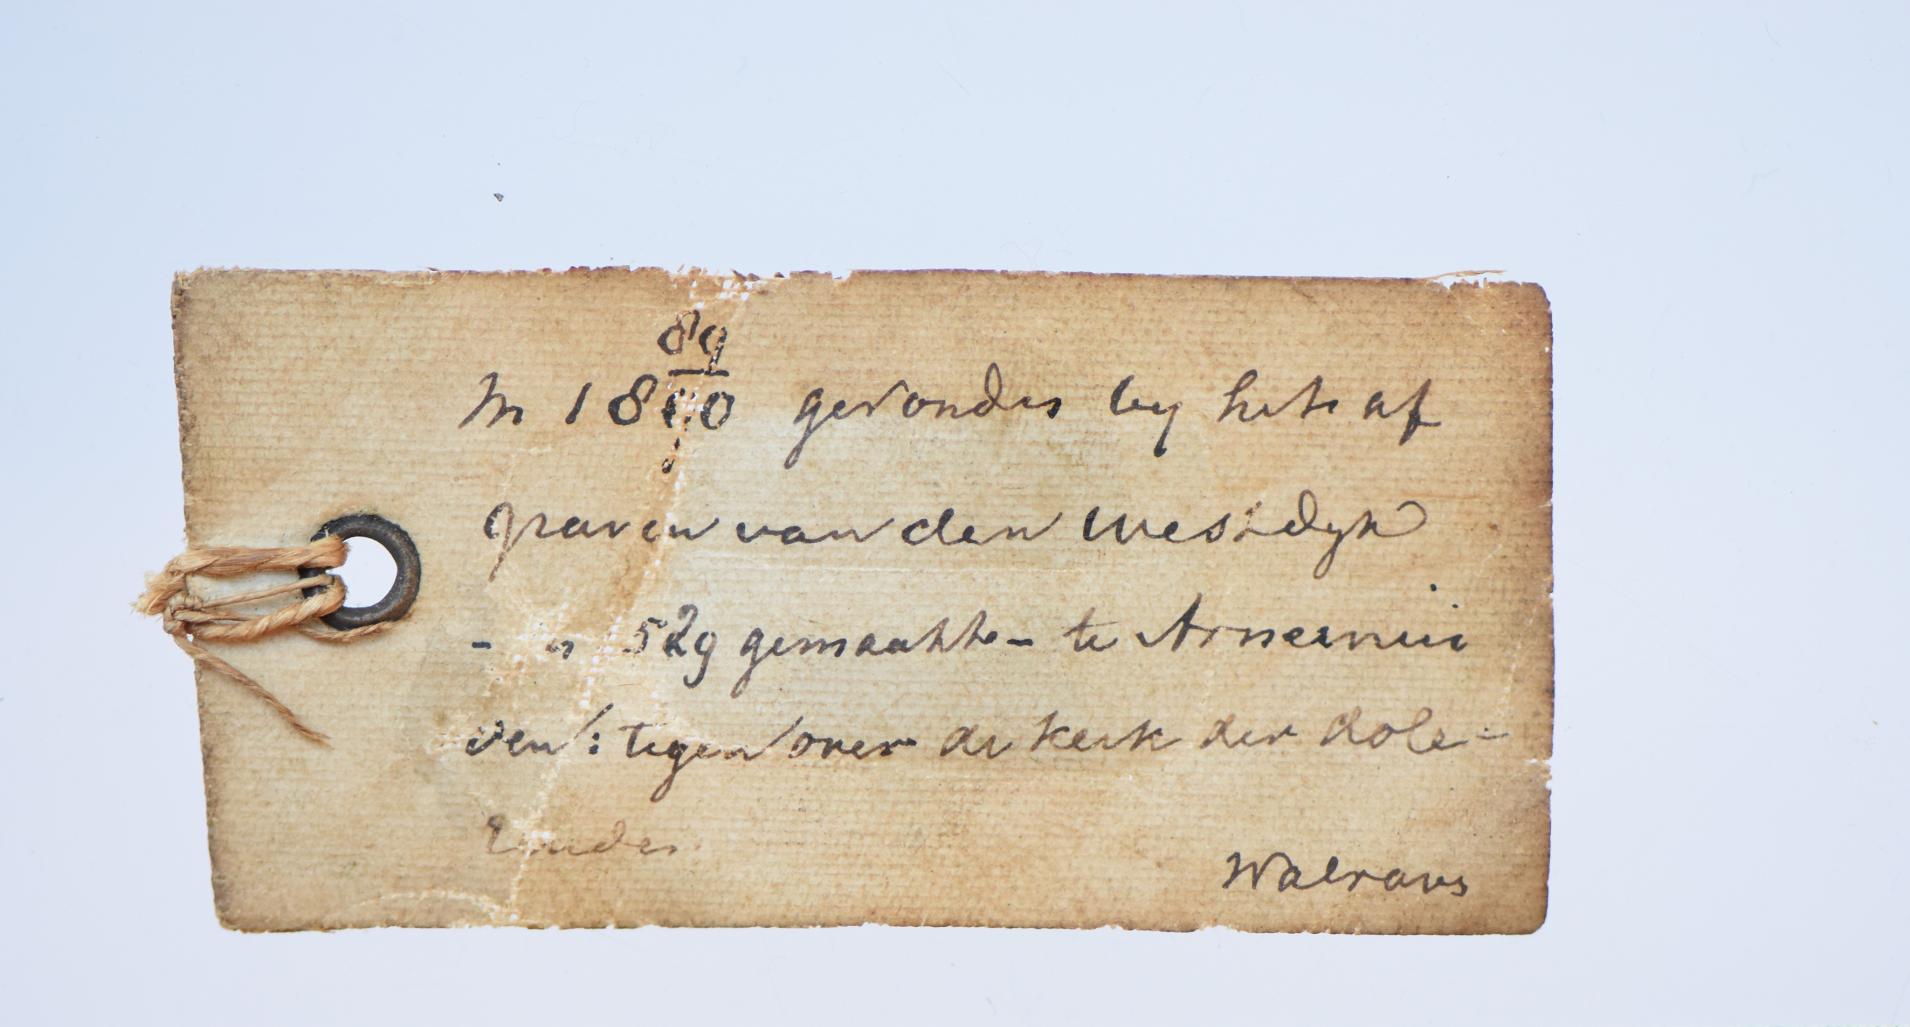 In 18 89/90 gevonden by het af
graven van den Westdyk
- in 1529 gemaakt - te Arnemui
den: tegenover de kerk der dole-
Erenden
Walraven